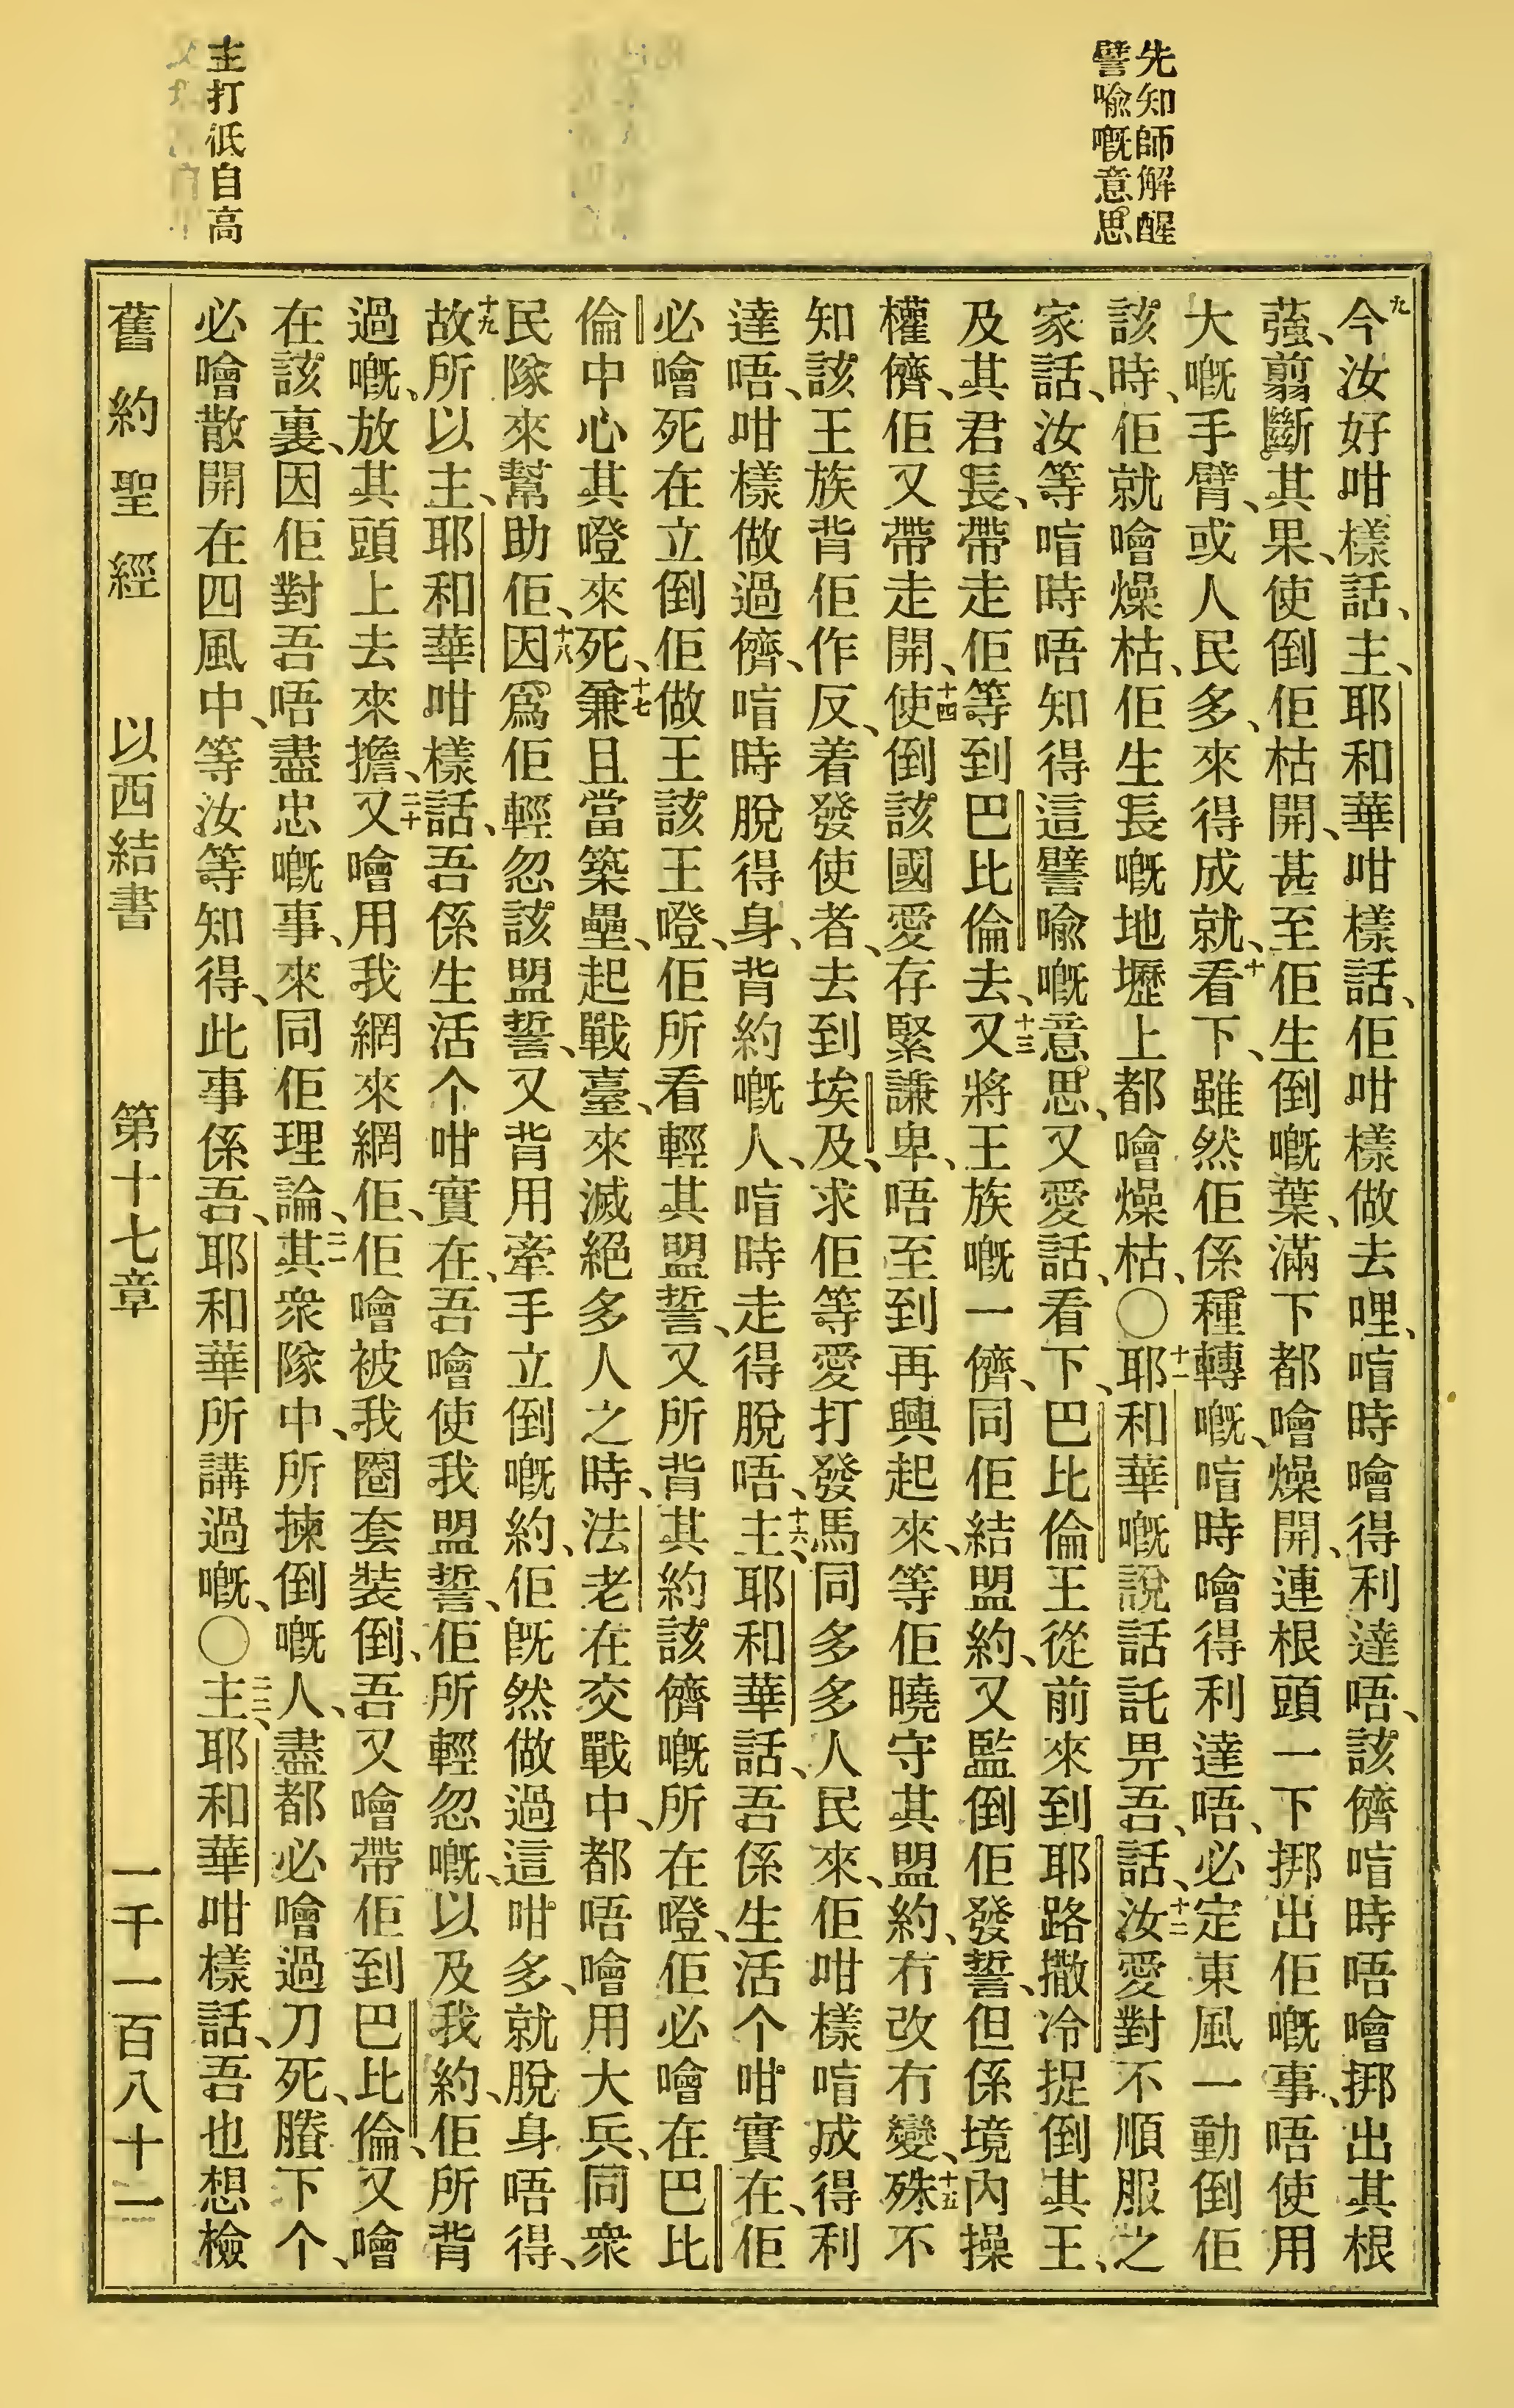 先知師解醒
譬喩嘅意思
主打低自高
九今汝好咁樣話、主、耶和華咁樣話、佢咁樣做去哩、𠸉時噲得利達唔、該儕𠸉時唔噲挷出其根
蔃、翦斷其果、使倒佢枯開、甚至佢生倒嘅葉、滿下都噲燥開、連根頭一下挷出佢嘅事、唔使用
大嘅手臂、或人民多、來得成就、十看下、雖然佢係種轉嘅、𠸉時噲得利達唔、必定東風一動倒佢
該時、佢就噲燥枯、佢生長嘅地壢上都噲燥枯、〇十一耶和華嘅說話託畀吾、話、十二汝愛對不順服之
家話、汝等𠸉時唔知得這譬喩嘅意思、又愛話、看下、巴比倫王從前來到耶路撒冷捉倒其王、
及其君長、帶走佢等到巴比倫去、十三又將王族嘅一儕、同佢結盟約、又監倒佢發誓、但係境內操
權儕、佢又帶走開、十四使倒該國愛存緊謙卑、唔至到再興起來、等佢曉守其盟約、冇改冇變、十五殊不
知該王族背佢作反、着發使者、去到埃及、求佢等愛打發馬同多多人民來、佢咁樣𠸉成得利
達唔、咁樣做過儕、𠸉時脫得身、背約嘅人、𠸉時走得脫唔、十六主、耶和華話、吾係生活个咁實在、佢
必噲死在立倒佢做王該王嶝、佢所看輕其盟誓、又所背其約該儕嘅所在嶝、佢必噲在巴比
倫中心其嶝來死、十七兼且當築壘、起戰臺、來滅絕多人之時、法老在交戰中、都唔噲用大兵、同衆
民隊來幫助佢、十八因爲佢輕忽該盟誓、又背用牽手立倒嘅約、佢旣然做過這咁多、就脫身唔得、
十九故所以主、耶和華咁樣話、吾係生活个咁實在、吾噲使我盟誓、佢所輕忽嘅、以及我約、佢所背
過嘅、放其頭上去來擔、二十又噲用我網來網佢、佢噲被我圈套裝倒、吾又噲帶佢到巴比倫、又噲
在該裏、因佢對吾唔盡忠嘅事、來同佢理論、二一其衆隊中、所揀倒嘅人、盡都必噲過刀死、賸下个、
必噲散開在四風中、等汝等知得、此事係吾、耶和華所講過嘅、〇二二主、耶和華咁樣話、吾也想檢
舊約聖經 以西結書 第十七章 一千一百八十二